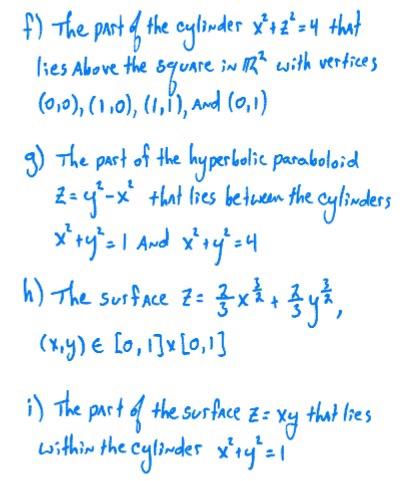 f) The part of the cylinder x²+z²=4 that
lies Above the square in ℝ² with vertices
(0,0), (1,0), (1,1), And (0,1)
g) The part of the hyperbolic paraboloid
z=y²-x² that lies between the cylinders
x²+y²=1 And x²+y²=4
h) The surface z= 2/3 x^(3/2) + 2/3 y^(3/2),
(x,y) ∈ [0,1]x[0,1]
i) The part of the surface z=xy that lies
within the cylinder x²+y²=1